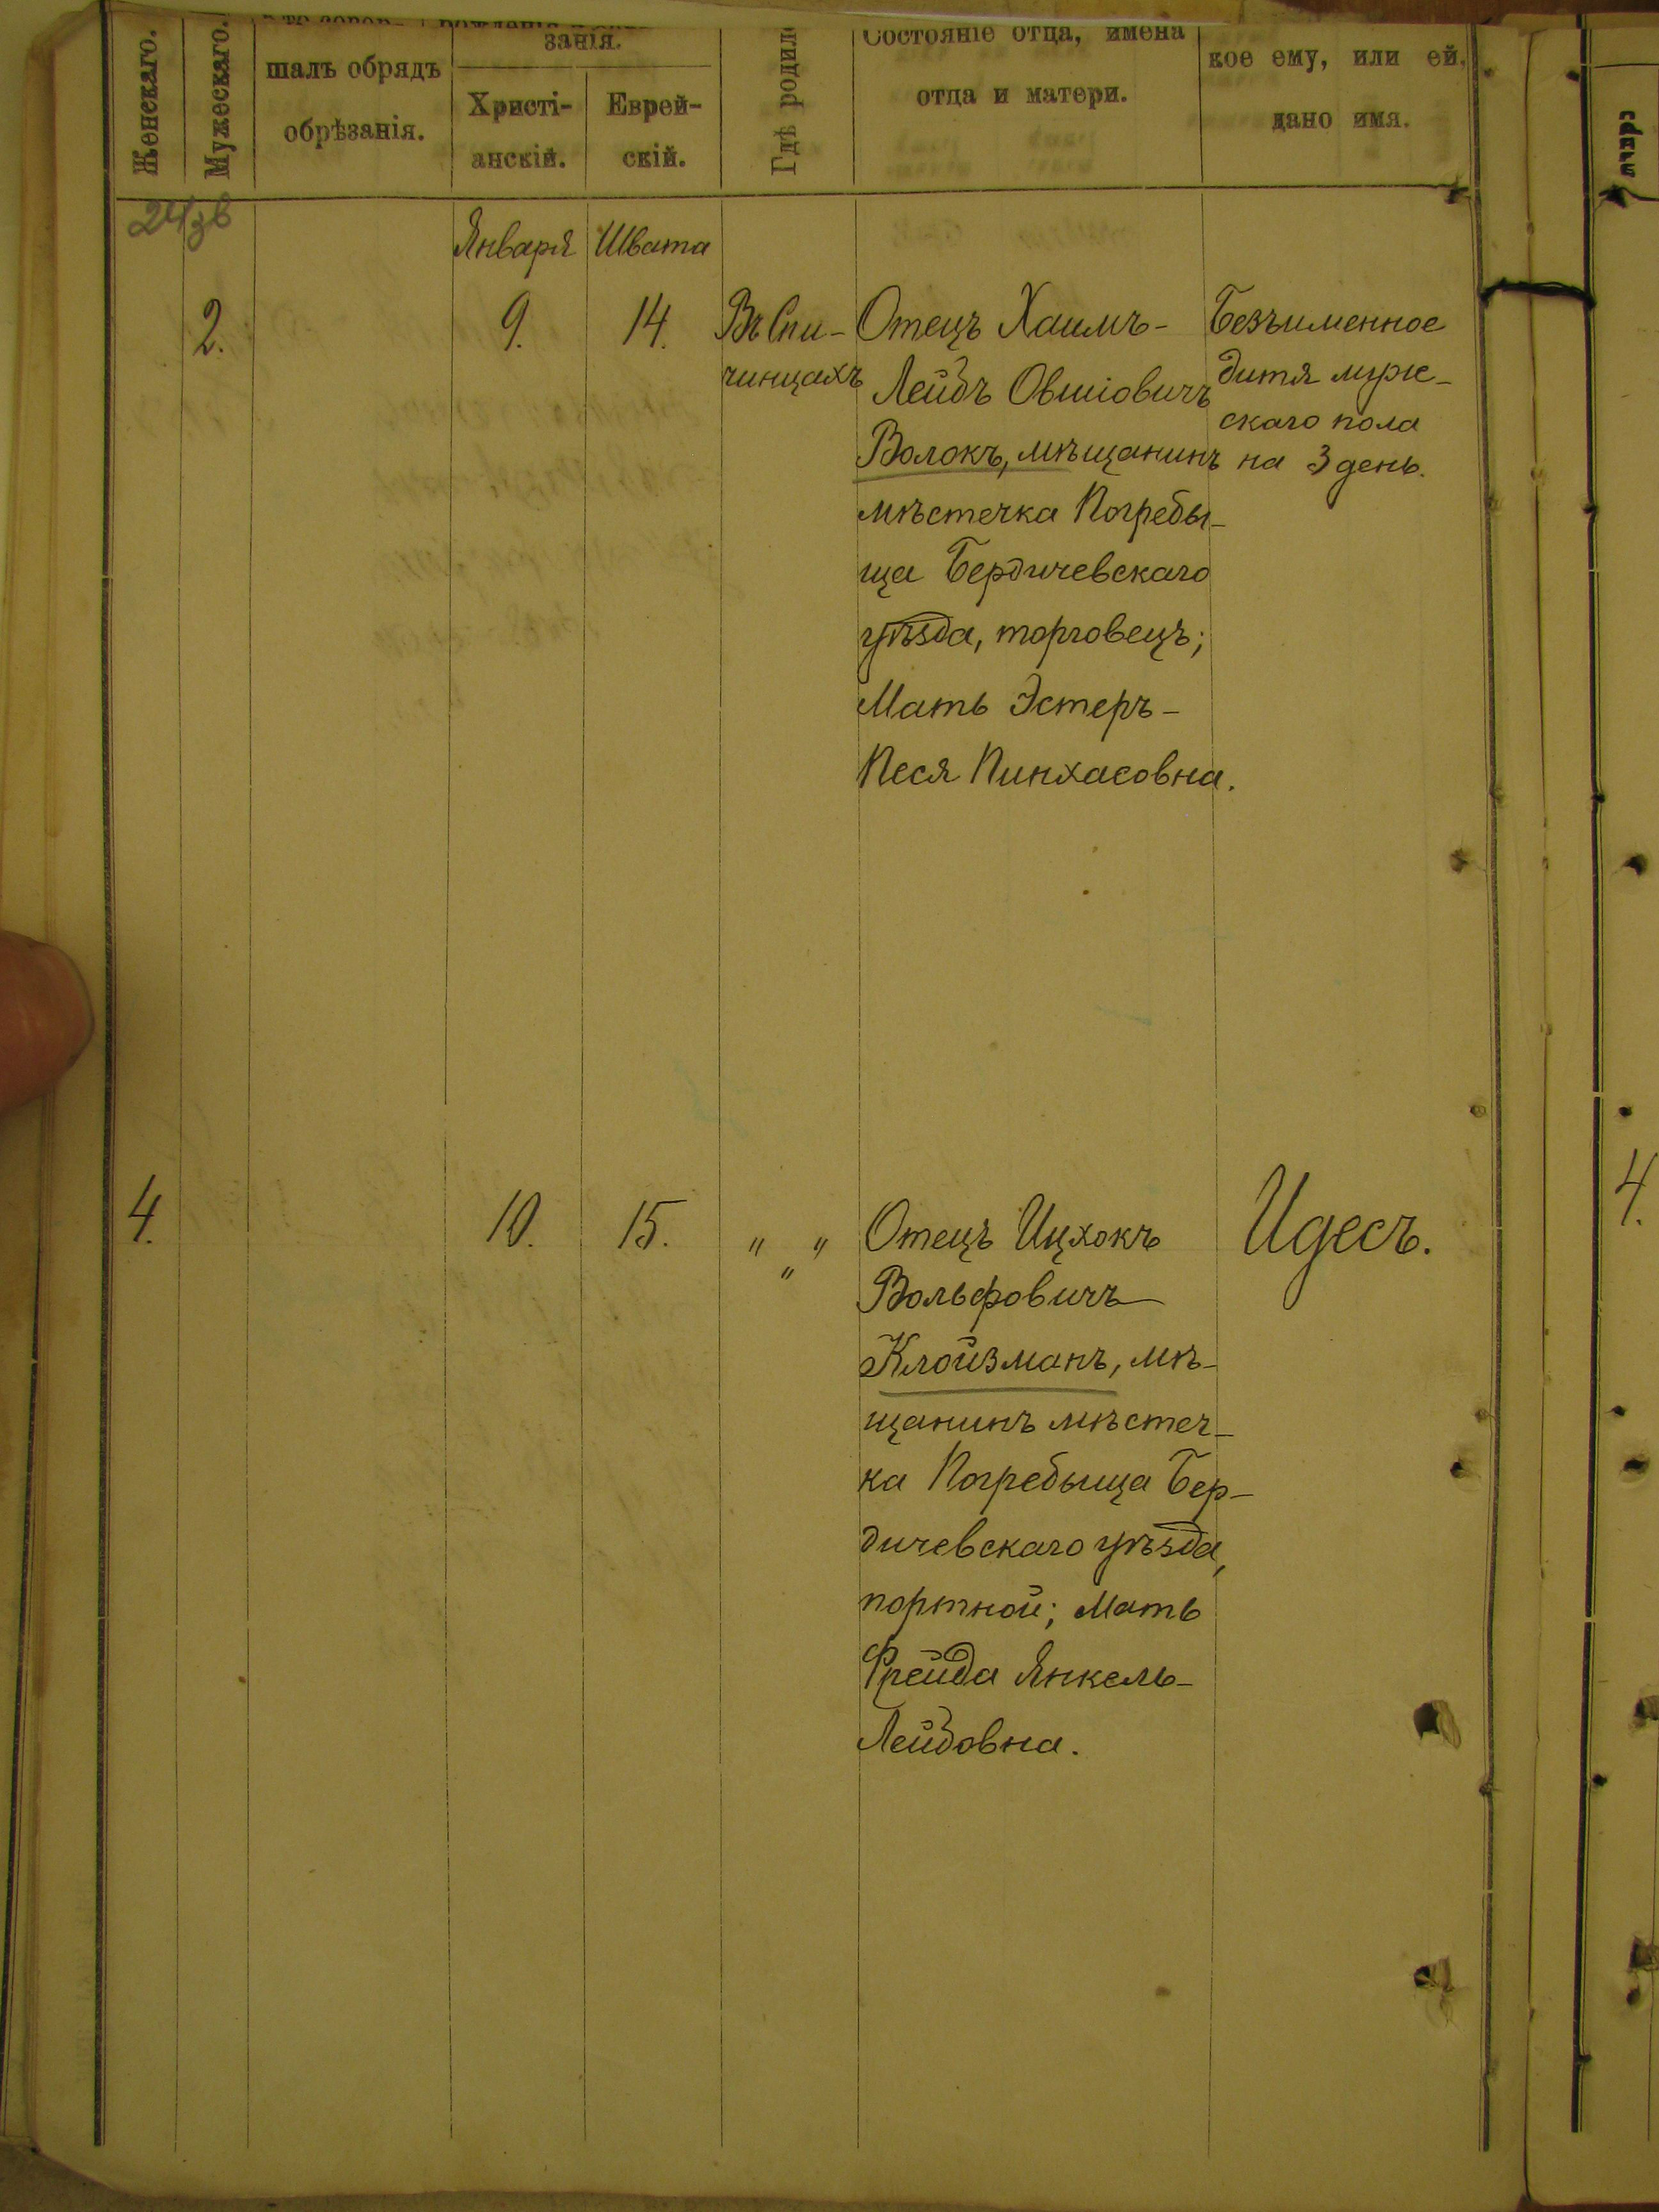 Женскаго.
Мужескаго.
шалъ обрядъ
обрѣзанія.
занія.
Христі-
анскій.
Еврей-
скій.
Гдѣ родил
Состояніе отца, имена
отца и матери.
кое ему, или ей.
дано имя.
Января
Швата
2.
9.
14.
Въ Спи-
чинцахъ
Отецъ Хаимъ-
Лейбъ Овшіовичъ
Волокъ, мѣщанинъ
мѣстечка Погребы-
ща Бердичевскаго
уѣзда, торговецъ;
Мать Эстеръ-
Песя Пинхасовна.
Безъименное
дитя муже-
скаго пола
на 3 день.
4.
10.
15.
" "
"
Отецъ Ицхокъ
Вольфовичъ
Клойзманъ, мѣ-
щанинъ мѣстеч-
ка Погребыща Бер-
дичевскаго уѣзда,
портной; Мать
Фрейда Янкель-
Лейбовна.
Идесъ.
4.